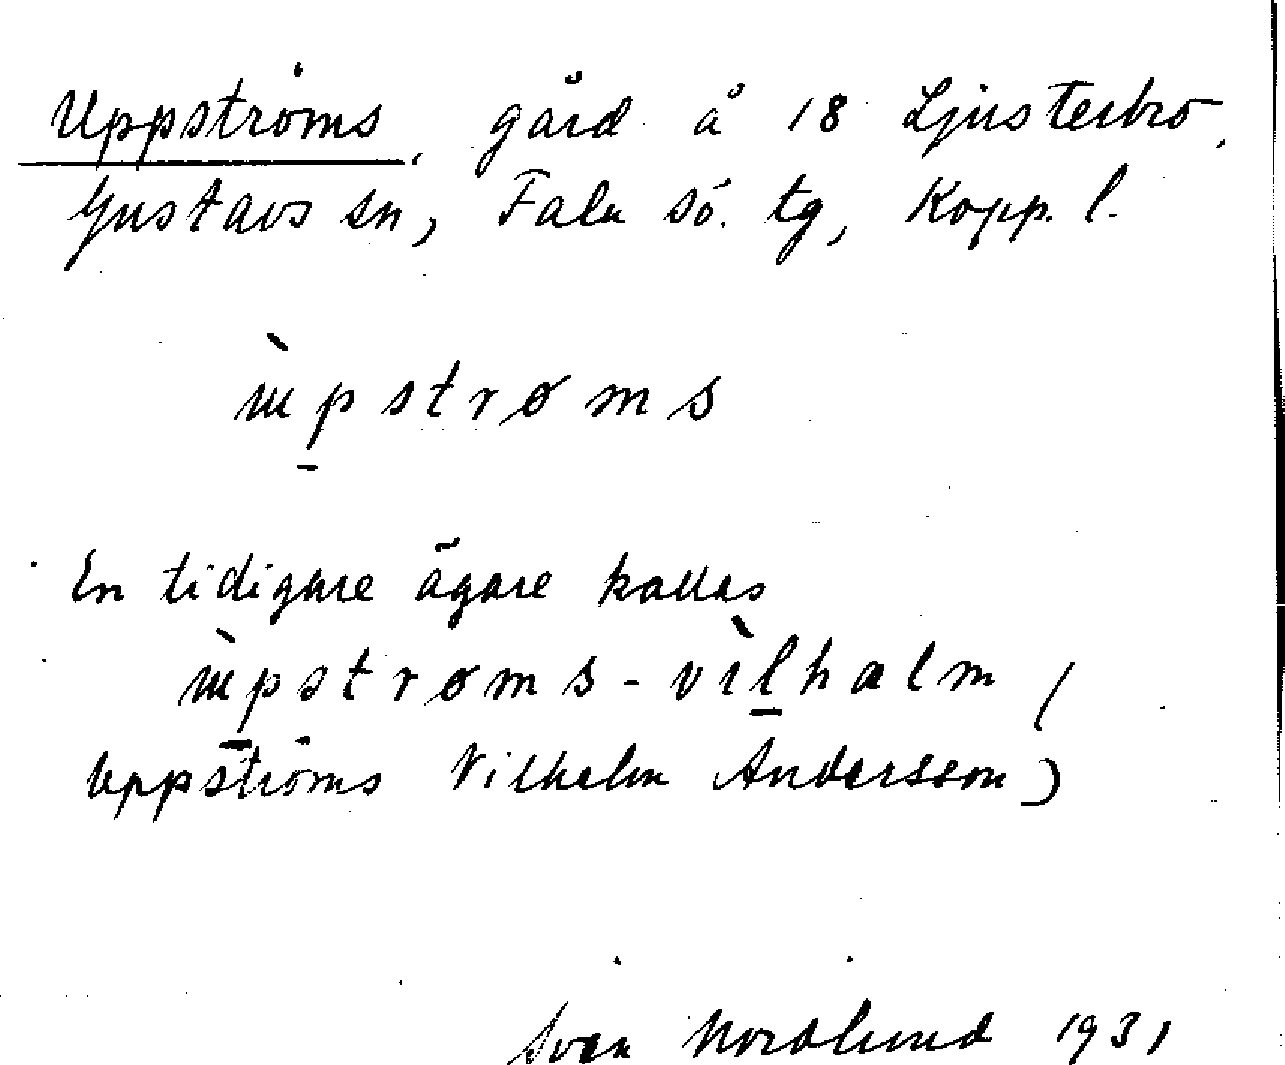 Uppströms, gård å 18 Ljusterbro,
Gustavs sn, Falu sö. tg, Kopp. l.
ùpstrøms
En tidigare ägare kallas
ùpstrøms-vìlhalm (
Uppströms Vilhelm Andersson)
Sven Nordlund 1931